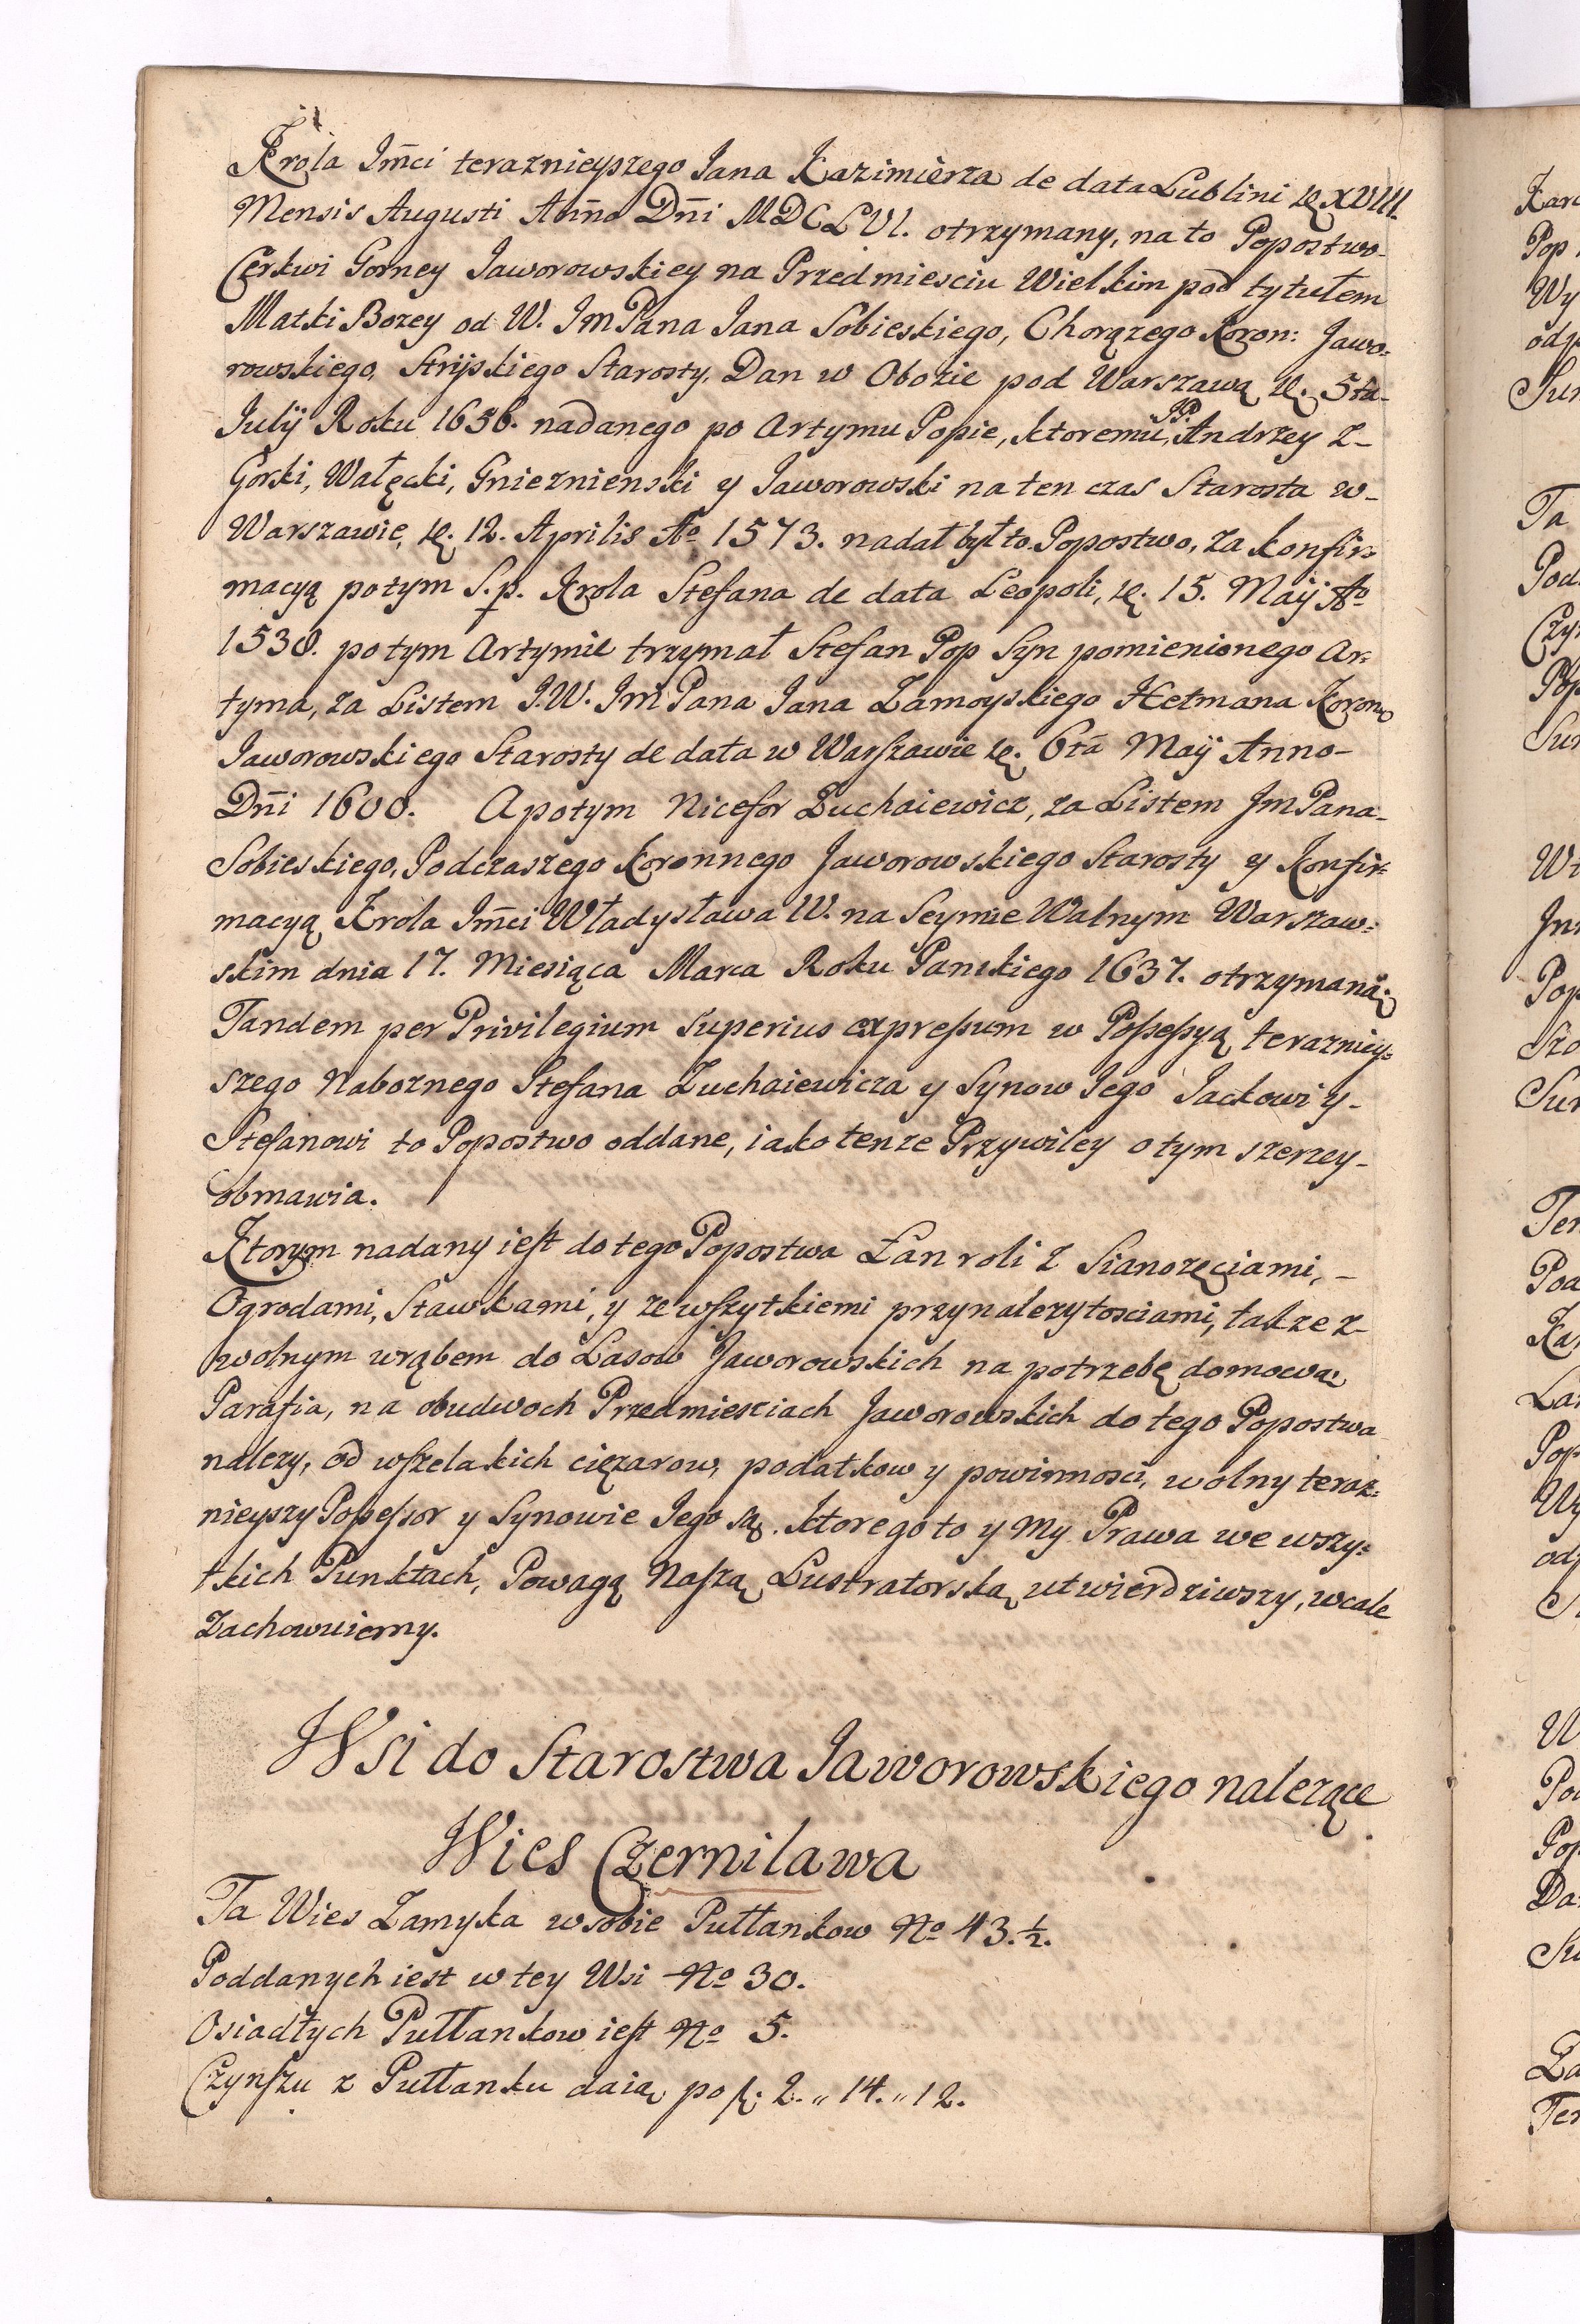 Krola Jm̃ci teraznieyszego Jana Kazimierza de data Lublini d. XVIII.
Mensis Augusti Ann̄o Dn̄i MDCLVI. otrzymany, na to Popostwo
Cerkwi Gorney Jaworowskiey na Przedmiesciu Wielkim pod tytułem
Matki Bozey od W. Jm Pana Jana Sobieskiego, Chorązego Koron: Jawo-
rowskiego, Stryiskiego Starosty, Dan w Obozie pod Warszawą d. 5ta
Julij Roku 1656. nadanego po Artymu Popie, ktoremu JP. Andrzey z
Gorki, Wałęcki, Gnieznienski y Jaworowski na ten czas Starosta w
Warszawie, d. 12. Aprilis Ao 1573. nadał był to Popostwo, za konfir-
macyą potym S.p. Krola Stefana de data Leopoli, d. 15. Maij Ao
1538. po tym Artymie trzymał Stefan Pop Syn pomienionego Ar-
tyma, za Listem J.W. Jm Pana Jana Zamoyskiego Hetmana Koron
Jaworowskiego Starosty de data w Warszawie d. 6ta Maij Anno
Dn̄i 1600. A potym Nicefor Zuchaiewicz, za Listem Jm Pana
Sobieskiego, Podczaszego Koronnego Jaworowskiego Starosty y Konfir-
macyą Krola Jm̃ci Władysława IV. na Seymie Walnym Warszaw-
skim dnia 17. Miesiąca Marca Roku Panskiego 1637. otrzymaną.
Tandem per Privilegium superius expressum w Possessyą terazniey-
szego Naboznego Stefana Zuchaiewicza y Synow Jego Jackowi y
Stefanowi to Popostwo oddane, iako tenze Przywiley o tym szerzey
obmawia.
Ktorym nadany iest do tego Popostwa Łan roli z Sianozęciami,
Ogrodami, Stawkami, y ze wszytkiemi przynalezytosciami, takze z
wolnym wrąbem do Lasow Jaworowskich na potrzebę domową
Parafia, na obudwoch Przedmiesciach Jaworowskich do tego Popostwa
nalezy, od wszelakich cięzarow, podatkow y powinnosci, wolny teraz-
nieyszy Possessor y Synowie Jego są. Ktorego to y My Prawa we wszy-
tkich Punktach, Powagą Naszą Lustratorską utwierdziwszy, wcale
Zachowuiemy.
Wsi do Starostwa Jaworowskiego nalezące
Wies Czernilawa
Ta Wies Zamyka w sobie Pułłankow No 43.½.
Poddanych iest w tey Wsi No 30.
Osiadłych Pułłankow iest No 5.
Czynszu z Pułłanku daią po f. 2. „ 14. „ 12.